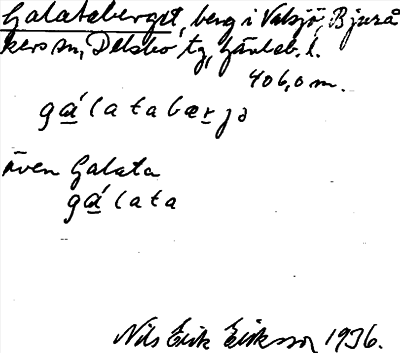 Galataberget, berg i Valsjö, Bjurå
kers sn, Delsbo tg, Gävleb. l.
406,0 m.
gálatabærjə
även Galata
gálata
Nils Erik Eriksson 1936.